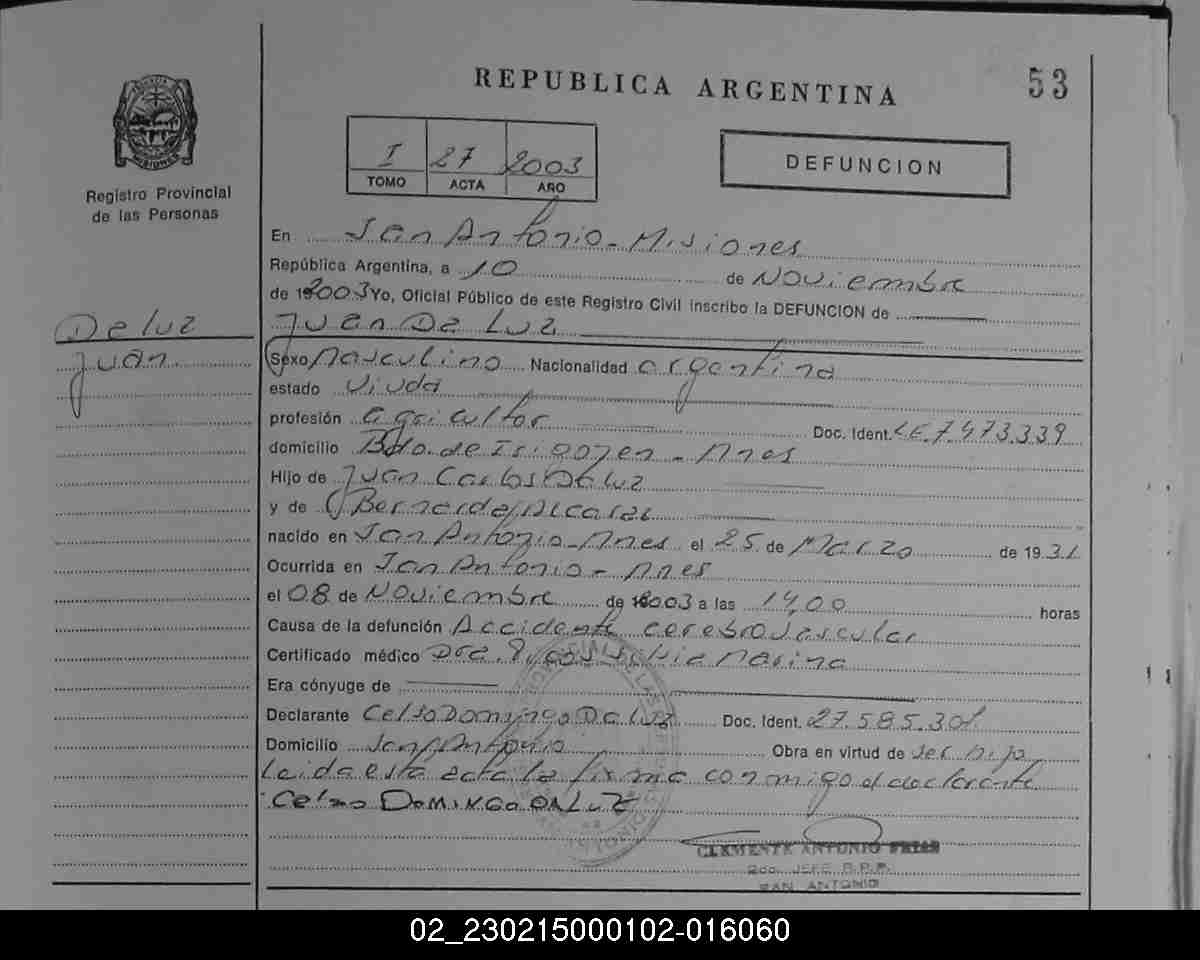 REPUBLICA ARGENTINA
53
MISIONES
Registro Provincial
de las Personas
I 27 2003
TOMO ACTA AÑO
DEFUNCION
En San Antonio - Misiones
República Argentina, a 10 de Noviembre
de 2003 Yo, Oficial Público de este Registro Civil inscribo la DEFUNCION de
De luz
Juan De Luz
Juan.
Sexo Masculino Nacionalidad argentina
estado Viudo
profesión agricultor Doc. Ident. LE.7.473.339
domicilio Bdo. de Irigoyen - Mnes
Hijo de Juan Carlos De Luz
y de Bernarda Alcaraz
nacido en San Antonio - Mnes el 25 de Marzo de 1931
Ocurrida en San Antonio - Mnes
el 08 de Noviembre de 2003 a las 14,00 horas
Causa de la defunción Accidente cerebrovascular
Certificado médico Dra. Silvia Marina
Era cónyuge de
Declarante Celso Domingo De Luz Doc. Ident. 27.585.301
Domicilio San Antonio Obra en virtud de ser hijo
Leida esta acta la firma conmigo el declarante
Celso DOMINGO DALUZ
CLEMENTE ANTONIO FRIAS
2do. JEFE R.P.P.
SAN ANTONIO
02_230215000102-016060